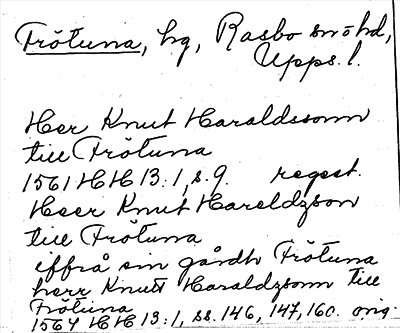 Frötuna, hg, Rasbo sn o hd,
Upps. l.
Herr Knut Haraldsson
till Frötuna
1561 HH 13:1, s. 9. regest.
Heer Knut Hareldzson
till Frötuna
iffrå sin gårdh Frötuna
herr Knutt Haraldzsonn till
Frötuna
1564 HH 13:1, ss. 146, 147, 160. orig.